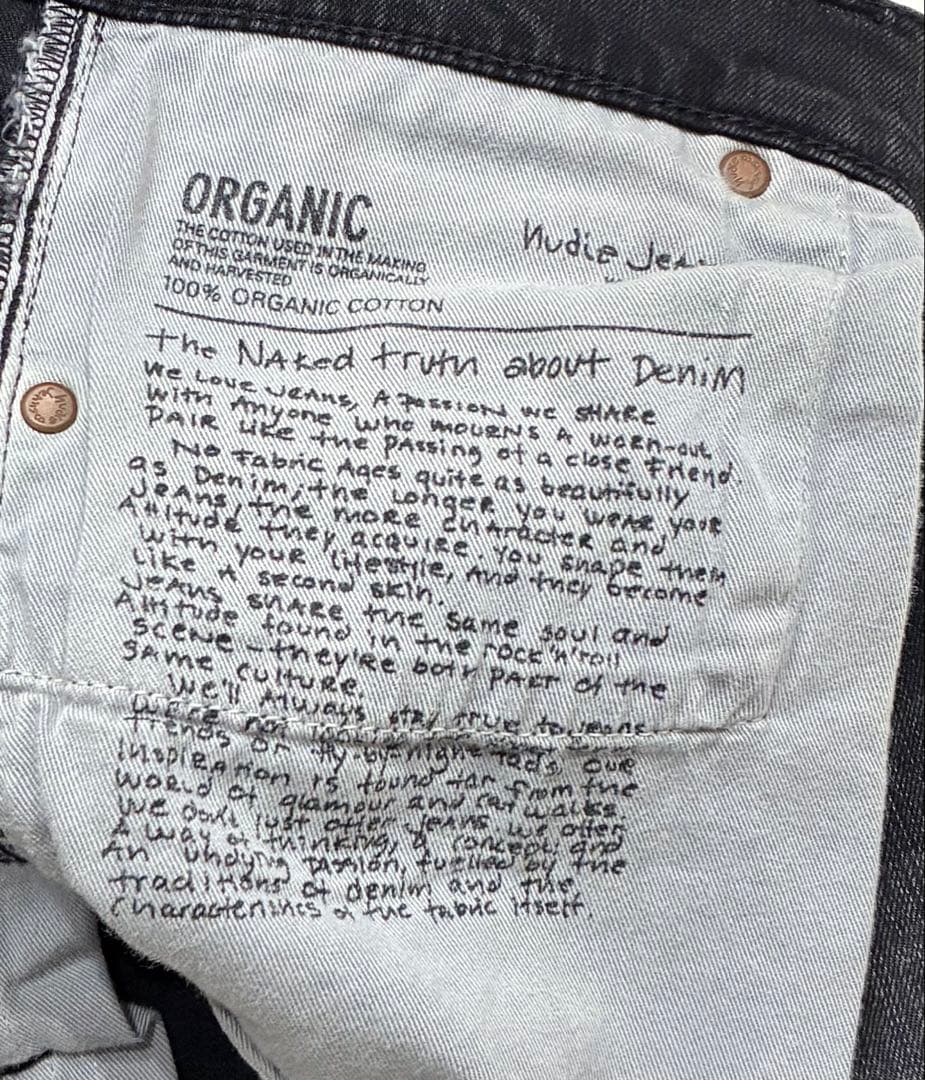 ORGANIC
THE COTTON USED IN THE MAKING
OF THIS GARMENT IS ORGANICALLY
AND HARVESTED
100% ORGANIC COTTON
Nudie Jea
the NAked truth about DeniM
we Love JeANs, A passion we SHARe
with Anyone who mourns A worn-out
PAIR Like the Passing of a close friend.
No fabric Ages quite as beautifully
as Denim; the Longer you wear your
Jeans, the more character and
Attitude they acquire. You shape them
with your lifestyle, and they become
Like A second skin.
Jeans share the same soul and
Attitude found in the rock'n'roll
scene - they're both PART of the
same culture.
We'll Always stay true to jeans.
We're not
trends or fly-by-night fads, our
inspiration is found far from the
world of glamour and catwalks.
We don't just offer jeans, we offer
A way of thinking, a concept and
An undying passion, fuelled by the
traditions of denim and the
characteristics of the fabric itself.